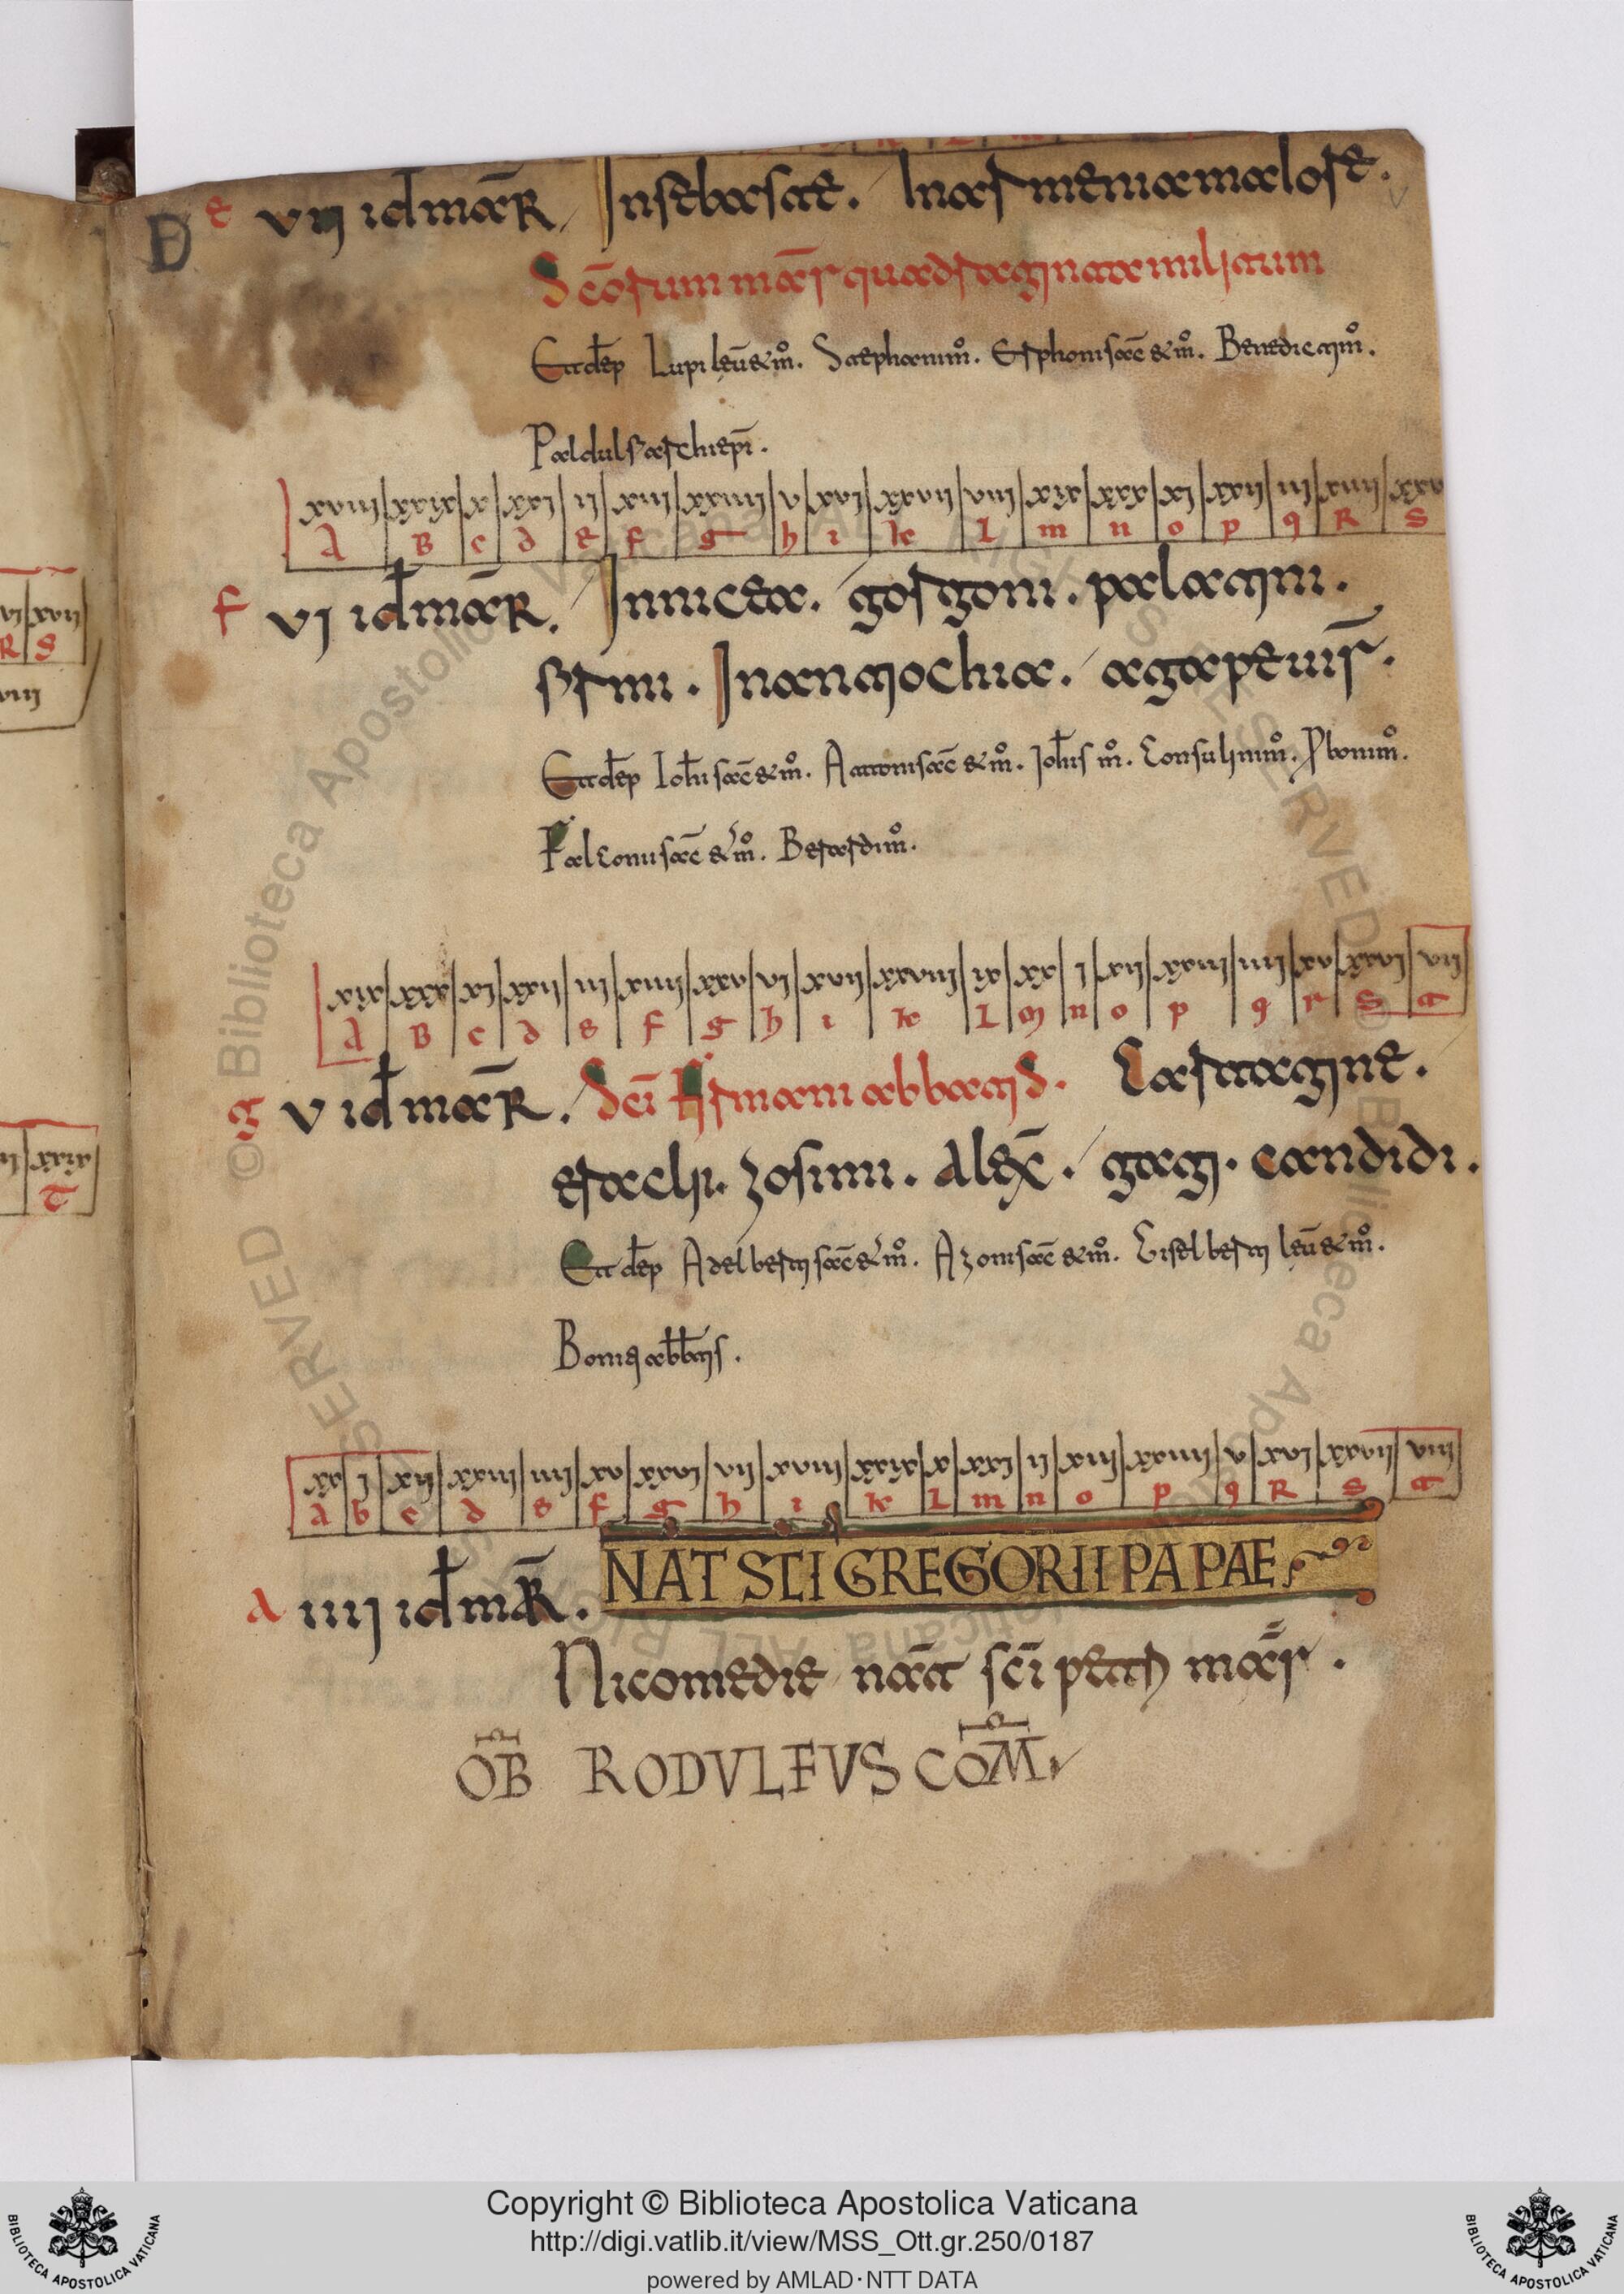 D e vii id mār. In sebaste. In armenia malore.
Scōrum mār quadraginta militum
Et dep Lupi leū & mō. Stephani mō. Erphoni sac̄ & mō. Benedicti mō.
Paldulf archiepī.
xviii xxix x xxi ii xiii xxiiii v xvi xxvii viii xix xxx xi xxii iii xiiii xxv
A B c d e f g h i k l m n o p q R S
f vi id mār. In nicea. gorgoni. palatini.
firmi. In antiochia. agape uir̄.
Et dep Iohī sac̄ & mō. Attoni sac̄ & mō. Iohīs mō. Consulini mō. Yboni mō.
Falconi sac̄ & mō. Berardi mō.
xix xxx xi xxii iii xiiii xxv vi xvii xxviii ix xx i xii xxiii iiii xv xxvi vii
A B c d e f g h i k l m n o p q r S t
g v id mār. Scī Firmani abbatis. Cartagine.
eracli. zosimi. Alex̄. gagi. candidi.
Et dep Adelberti sac̄ & mō. Azoni sac̄ & mō. Giselberti leū & mō.
Boniz abbatis.
xx i xii xxiii iiii xv xxvi vii xviii xxix x xxi ii xiii xxiiii v xvi xxvii viii
a b c d e f g h i k l m n o p q R s t
A iiii id mār. NAT SCI GREGORII PAPAE
Nicomedie nat̄ scī petri mār̄.
OB RODVLFVS COM
VI XVII
R S
VIII
XXIX
T
Copyright © Biblioteca Apostolica Vaticana
http://digi.vatlib.it/view/MSS_Ott.gr.250/0187
powered by AMLAD·NTT DATA
BIBLIOTECA APOSTOLICA VATICANA
BIBLIOTECA APOSTOLICA VATICANA